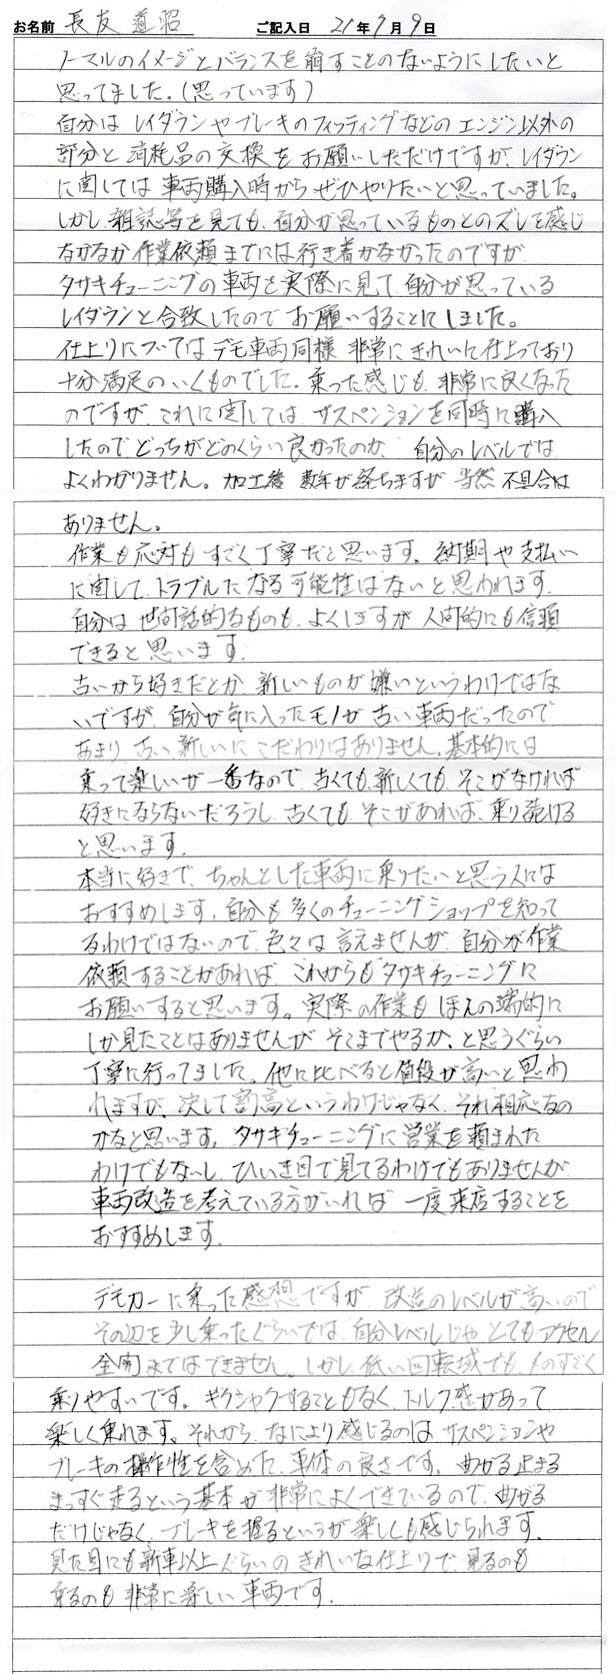 お名前 長友 直沼 ご記入日 21年9月9日
ノーマルのイメージとバランスを崩すことのないようにしたいと
思ってました。(思っています)
自分は レイダウンやブレーキのフィッティングなどの エンジン以外の
部分と 消耗品の交換を お願いしただけですが、レイダウン
に関しては 車両購入時から ぜひやりたいと思っていました。
しかし、雑誌等を見ても、自分が思っているものとのズレを感じ
なかなか作業依頼までには行き着かなかったのですが
タサキチューニングの車両を実際に見て、自分が思っている
レイダウンと合致したので お願いすることにしました。
仕上りについてはデモ車両同様 非常にきれいに仕上っており
十分満足のいくものでした。乗った感じも、非常に良くなった
のですが、これに関しては サスペンションを同時に購入
したのでどっちがどのくらい良かったのか、自分のレベルでは
よくわかりません。加工後 数年が経ちますが 当然 不具合は
ありません。
作業も応対もすごく丁寧だと思います。納期や支払い
に関して、トラブルになる可能性はないと思われます。
自分は 世間話的なものも、よくしますが 人間的にも信頼
できると思います。
古いから好きだとか、新しいものが嫌いというわけではな
いですが、自分が気に入ったモノが古い車両だったので
あまり 古い新しいに こだわりはありません。基本的には
乗って楽しいが一番なので、古くても、新しくても、そこがなければ
好きにならないだろうし、古くても、そこがあれば、乗り続ける
と思います。
本当に好きで、ちゃんとした車両に乗りたいと思う人には
おすすめします。自分も多くのチューニングショップを知って
るわけではないので、色々は言えませんが、自分が作業
依頼することがあれば、これからもタサキチューニングに
お願いすると思います。実際の作業も ほんの端的に
しか見たことはありませんが、そこまでやるか、と思うぐらい
丁寧に行ってました。他に比べると値段が高いと思わ
れますが、決して割高というわけじゃなく、それ相応なの
かなと思います。タサキチューニングに営業を頼まれた
わけでもないし、ひいき目で見てるわけでもありませんが
車両改造を考えている方がいれば 一度来店することを
おすすめします。
デモカーに乗った感想ですが、改造のレベルが高いので
その辺を少し乗ったぐらいでは、自分レベルじゃ とてもアクセル
全開まではできません。しかし、低い回転域でも、ものすごく
乗りやすいです。ギクシャクすることもなく、トルク感があって
楽しく乗れます。それから、なにより感じるのは サスペンションや
ブレーキの操作性を含めた、車体の良さです。曲がる 止まる
まっすぐ走るという基本が非常によくできているので、曲がる
だけじゃなく、ブレーキを握るというが楽しくも感じられます。
見た目にも新車以上ぐらいの きれいな仕上りで、見るのも
乗るのも 非常に楽しい 車両です。